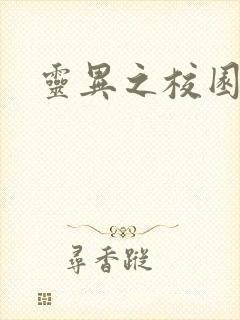 靈異之校園
尋香蹤